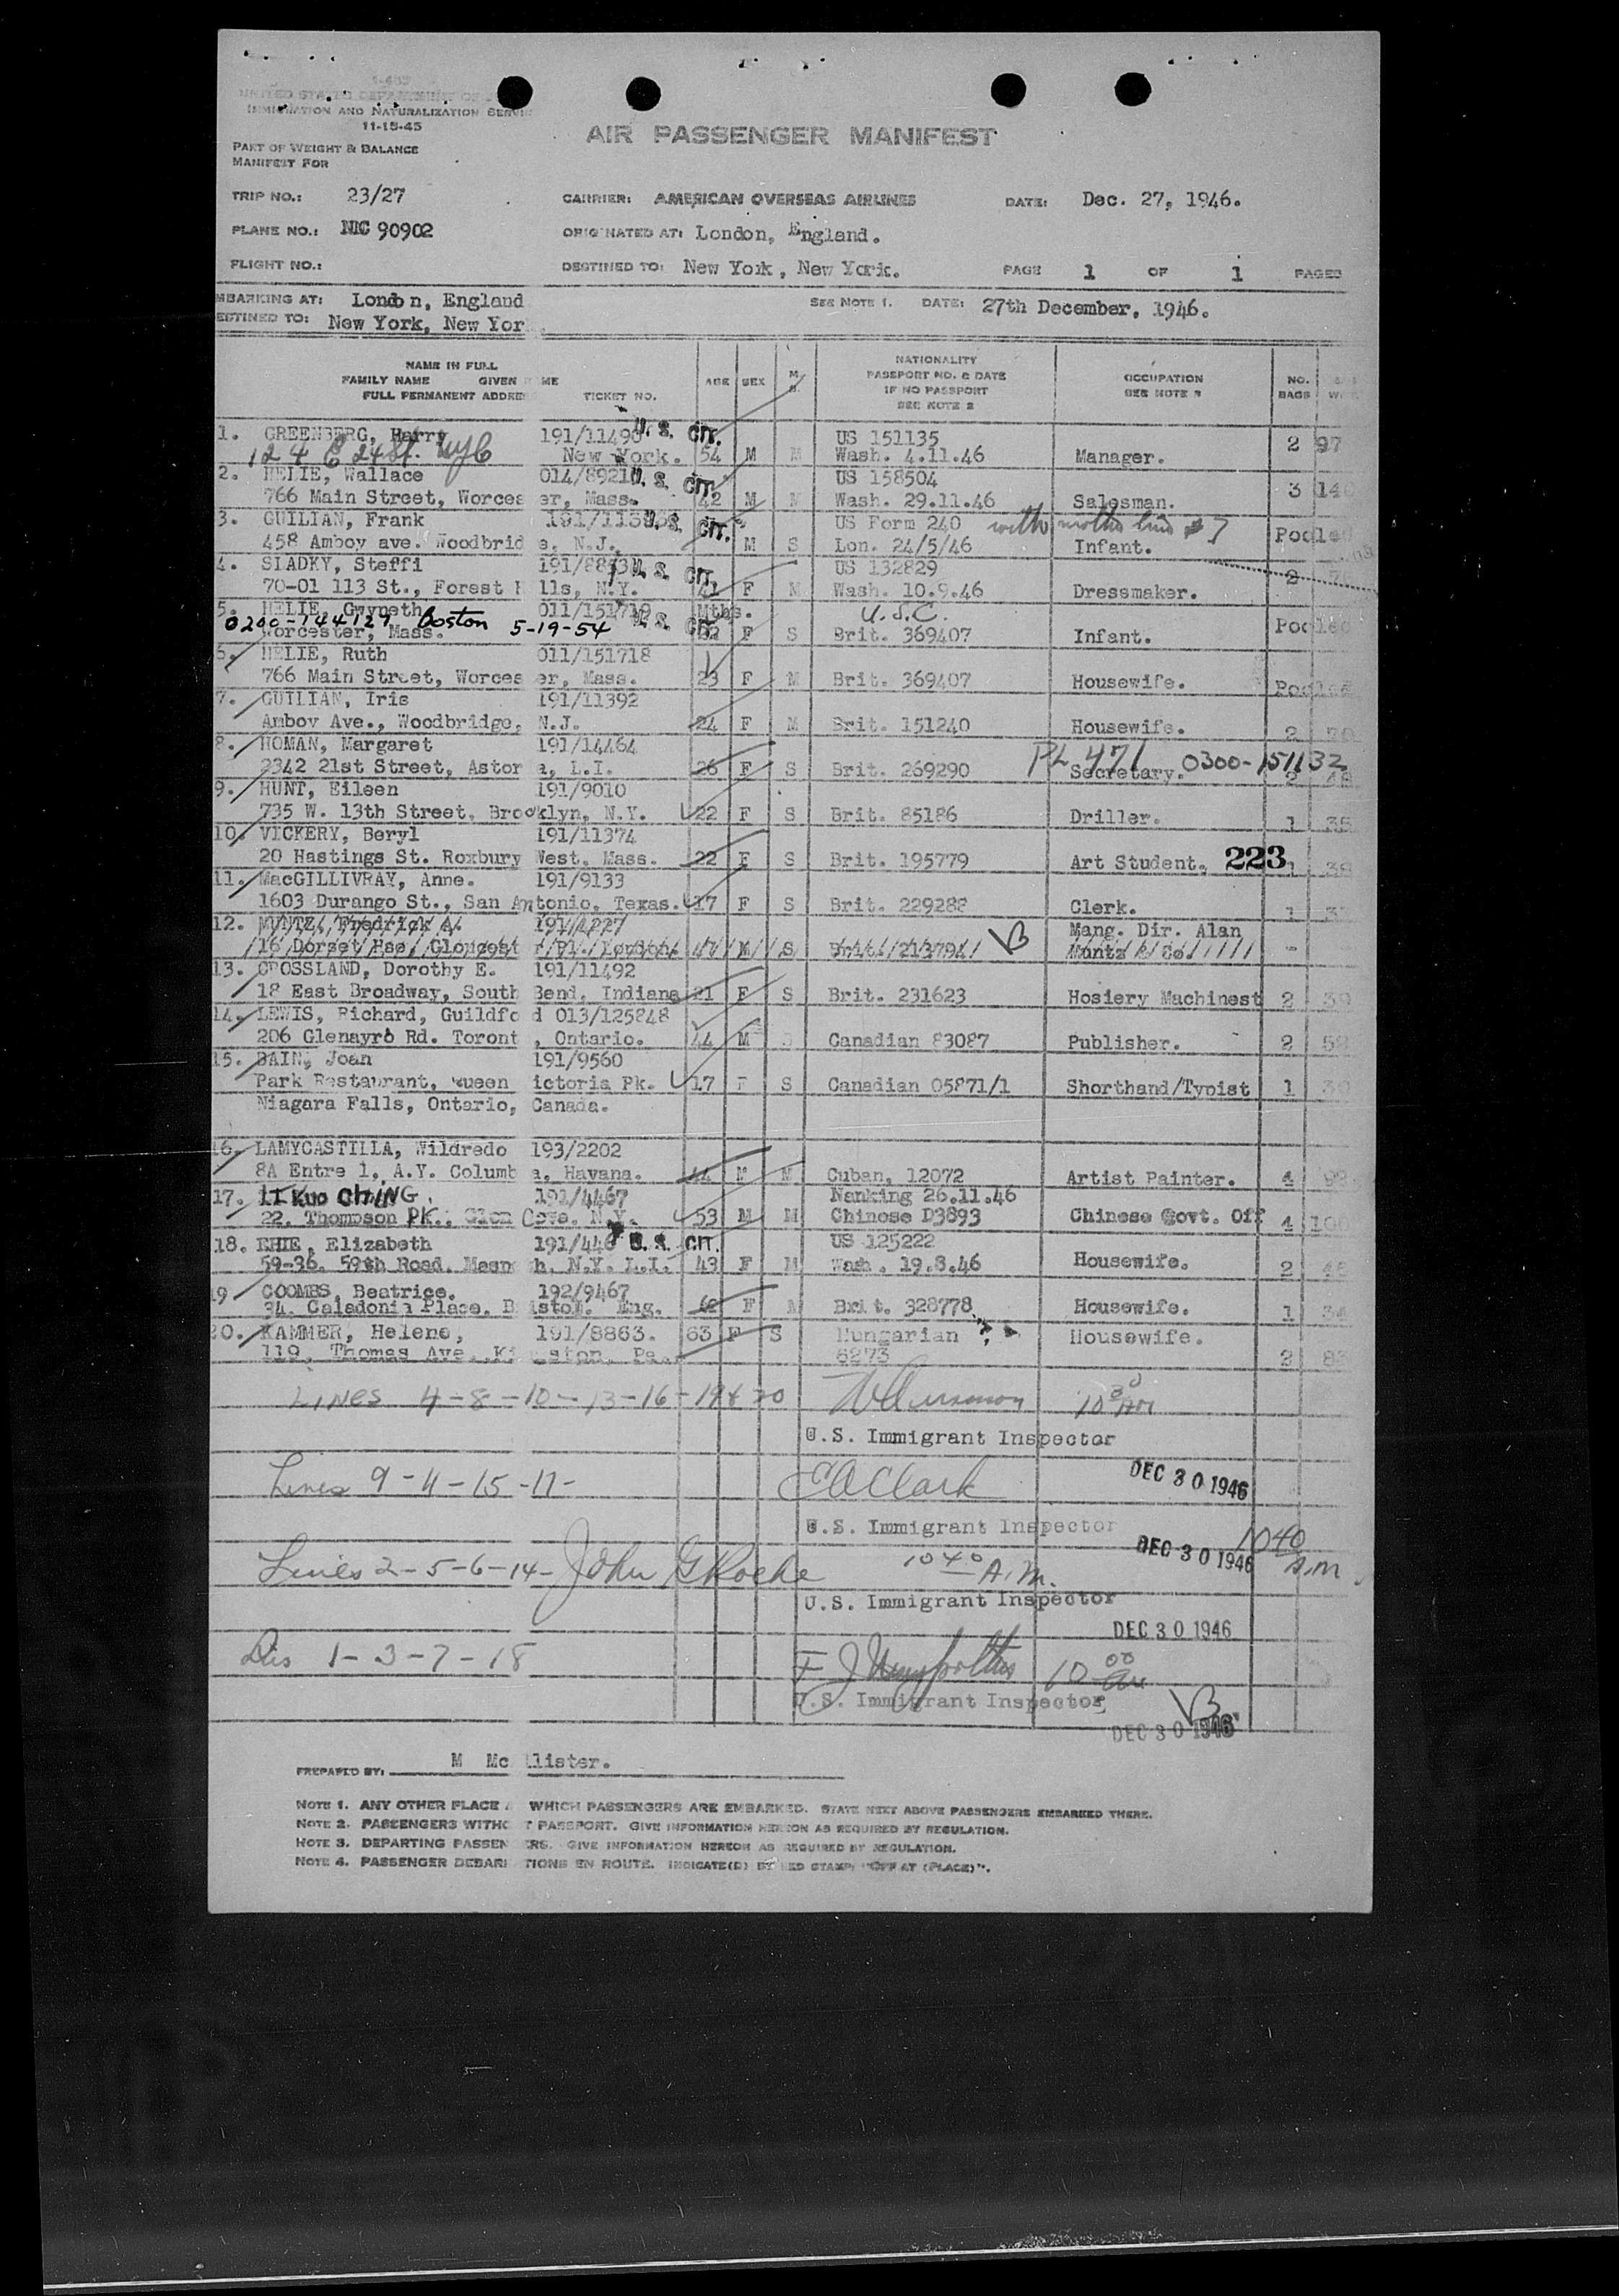 I-466
UNITED STATES DEPARTMENT OF
IMMIGRATION AND NATURALIZATION SERVI
11-15-45
AIR PASSENGER MANIFEST
PART OF WEIGHT & BALANCE
MANIFEST FOR
TRIP NO.: 23/27 CARRIER: AMERICAN OVERSEAS AIRLINES DATE: Dec. 27, 1946.
PLANE NO.: NC 90902 ORIGINATED AT: London, England.
FLIGHT NO.: DESTINED TO: New York, New York. PAGE 1 OF 1 PAGES
MBARKING AT: London, England SEE NOTE 1. DATE: 27th December, 1946.
ESTINED TO: New York, New Yor
NAME IN FULL NATIONALITY
FAMILY NAME GIVEN ME AGE SEX M S PASSPORT NO. & DATE OCCUPATION NO.
FULL PERMANENT ADDRE TICKET NO. IF NO PASSPORT SEE NOTE BAGS
SEE NOTE 2
1. GREENBERG, Harry 191/11490 U. S. CIT. US 151135
124 E 24 St. NYC New York. 54 M M Wash. 4.11.46 Manager. 2 97
2. HELIE, Wallace 014/8921 U. S. CIT. US 158504
766 Main Street, Worces er, Mass. 42 M M Wash. 29.11.46 Salesman. 3 140
3. GUILIAN, Frank U. S. CIT. US Form 240 with mother line 7
458 Amboy ave. Woodbrid e, N.J. M S Lon. 24/5/46 Infant. Pooled
4. SLADKY, Steffi U. S. CIT. US 132829
70-01 113 St., Forest H lls, N.Y. 41 F M Wash. 10.9.46 Dressmaker. 2
5. HELIE, Gwyneth 011/151719 U. S. CIT. Mths. U.S.C.
0200-144129 Boston 5-19-54
Worcester, Mass. F S Brit. 369407 Infant. Pooled
6. HELIE, Ruth 011/151718
766 Main Street, Worces er, Mass. 23 F M Brit. 369407 Housewife. Pooled
7. GUILIAN, Iris 191/11392
Amboy Ave., Woodbridge, N.J. 24 F M Brit. 151240 Housewife. 2
8. HOMAN, Margaret 191/14464
2342 21st Street, Astor a, L.I. 26 F S Brit. 269290 PL 471 Secretary. 0300-151132 2 48
9. HUNT, Eileen 191/9010
735 W. 13th Street, Brooklyn, N.Y. 22 F S Brit. 85186 Driller. 1
10. VICKERY, Beryl 191/11374
20 Hastings St. Roxbury West. Mass. 22 F S Brit. 195779 Art Student. 223 1 38
11. MacGILLIVRAY, Anne. 191/9133
1603 Durango St., San Antonio, Texas. 17 F S Brit. 229288 Clerk. 1
12. MUNTZ, Fredrick A. 191/1227 Mang. Dir. Alan
16 Dorset Hse, Gloucest r Pl. London 47 M S Brit. 213794 Muntz & Co. -
13. CROSSLAND, Dorothy E. 191/11492
18 East Broadway, South Bend, Indiana 21 F S Brit. 231623 Hosiery Machinest 2 39
14. LEWIS, Richard, Guildfo d 013/125848
206 Glenayro Rd. Toront , Ontario. 44 M S Canadian 83087 Publisher. 2 58
15. BAIN, Joan 191/9560
Park Restaurant, Queen ictoria Pk. 17 F S Canadian 05871/1 Shorthand/Typist 1 30
Niagara Falls, Ontario, Canada.
16. LAMYCASTILLA, Wildredo 193/2202
8A Entre 1, A.Y. Columb a, Havana. 44 M M Cuban, 12072 Artist Painter. 4
17. LI Kuo CHING. 191/4467 Nanking 26.11.46
22, Thompson PK., Glen Cove. N.Y. 53 M M Chinese D3893 Chinese Govt. Off 4 106
18. EHIE, Elizabeth 191/446 U. S. CIT. US 125222
59-36. 59th Road. Masp h, N.Y. L.I. 43 F M Wash. 19.8.46 Housewife. 2
19 COOMBS, Beatrice. 192/9467
34. Caledonia Place, B istol. Eng. 62 F M Brit. 328778 Housewife. 1 34
20. KAMMER, Helene, 191/8863. 63 F S Hungarian ? Housewife.
119, Thomas Ave. Ki ston, Pa. 6273 2 83
LINES 4-8-10-13-16-19 & 20 10 30 AM
U.S. Immigrant Inspector
Lines 9-11-15-17- E A Clark DEC 30 1946
U.S. Immigrant Inspector 1040 A.M
Lines 2-5-6-14- John G Roche 1040 A.M. DEC 30 1946
U.S. Immigrant Inspector
DEC 30 1946
Lis 1-3-7-18 10 00 am
U.S. Immigrant Inspector
DEC 30 1946
PREPARED BY: M Mc llister.
NOTE 1. ANY OTHER PLACE A WHICH PASSENGERS ARE EMBARKED. STATE NEXT ABOVE PASSENGERS EMBARKED THERE.
NOTE 2. PASSENGERS WITHO T PASSPORT. GIVE INFORMATION HEREON AS REQUIRED BY REGULATION.
NOTE 3. DEPARTING PASSEN ERS. GIVE INFORMATION HEREON AS REQUIRED BY REGULATION.
NOTE 4. PASSENGER DEBARK TIONS EN ROUTE. INDICATE(D) BY RED STAMP "OFF AT (PLACE)".